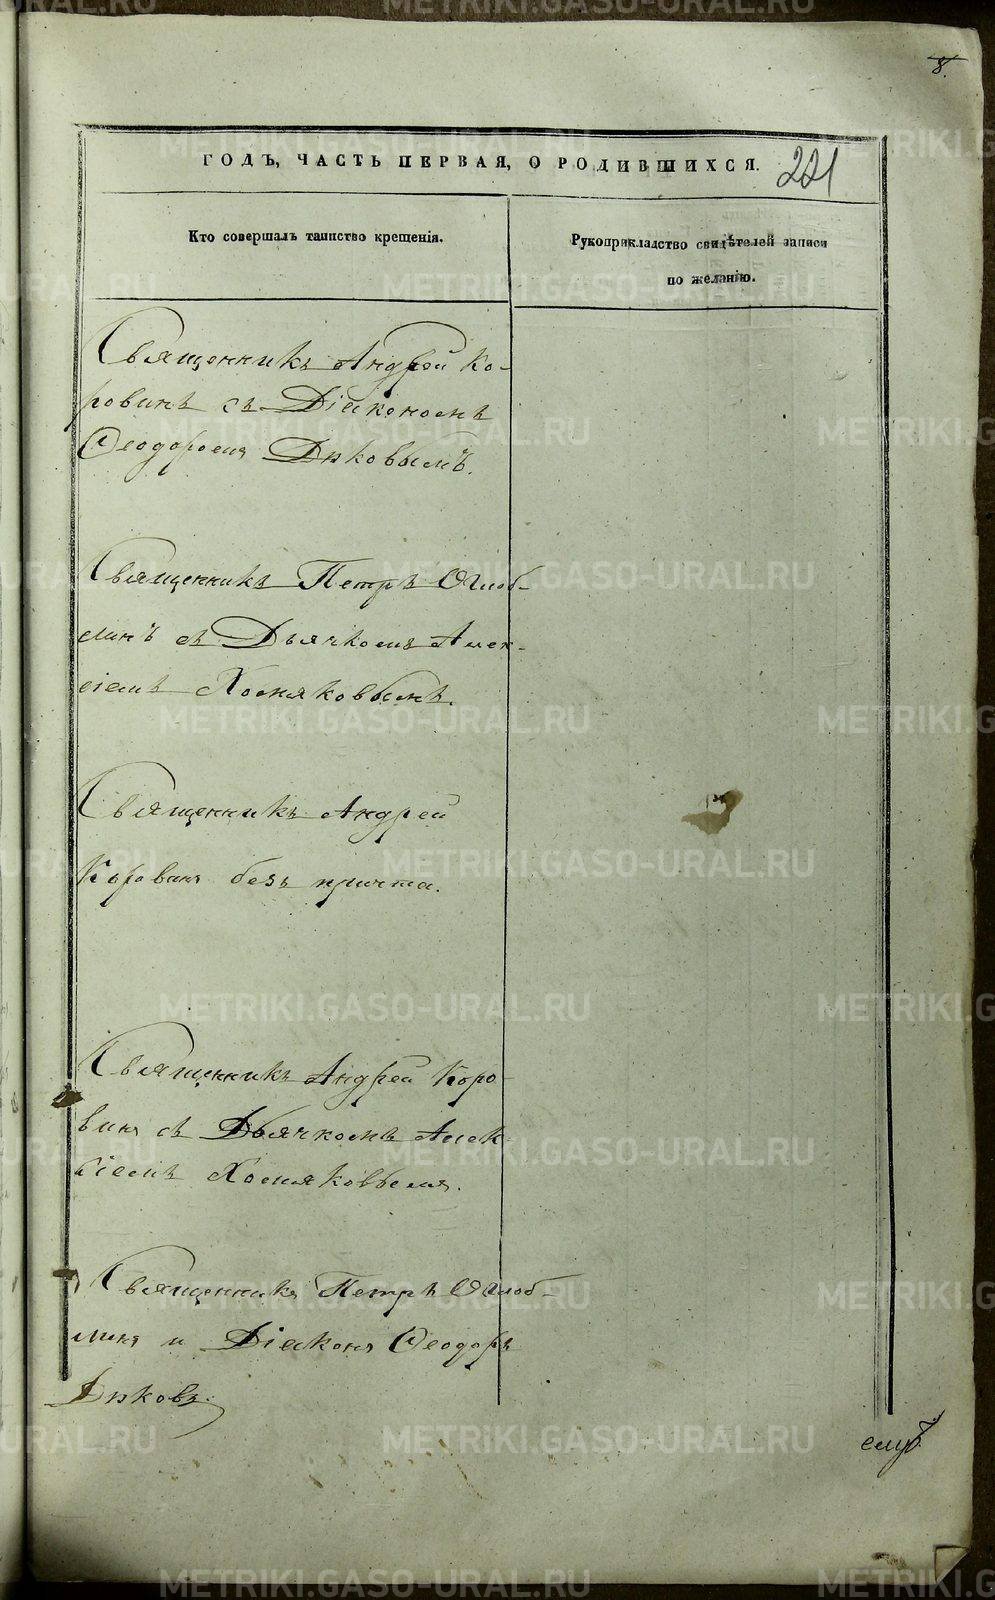 8.
ГОДЪ, ЧАСТЬ ПЕРВАЯ, О РОДИВШИХСЯ.
221
Кто совершалъ таинство крещенія.
Рукоприкладство свидѣтелей записи
по желанію.
Священникъ Андрей Ко-
ровинъ съ Діакономъ
Ѳеодоромъ Диковымъ.
Священникъ Петръ Оглоб-
линъ съ Дьячкомъ Алек-
сіемъ Хомяковымъ.
Священникъ Андрей
Коровинъ безъ причта.
Священникъ Андрей Коро-
винъ съ Дьячкомъ Алек-
сіемъ Хомяковымъ.
Священникъ Петръ Оглоб-
линъ и Діаконъ Ѳеодоръ
Диковъ.
METRIKI.GASO-URAL.RU